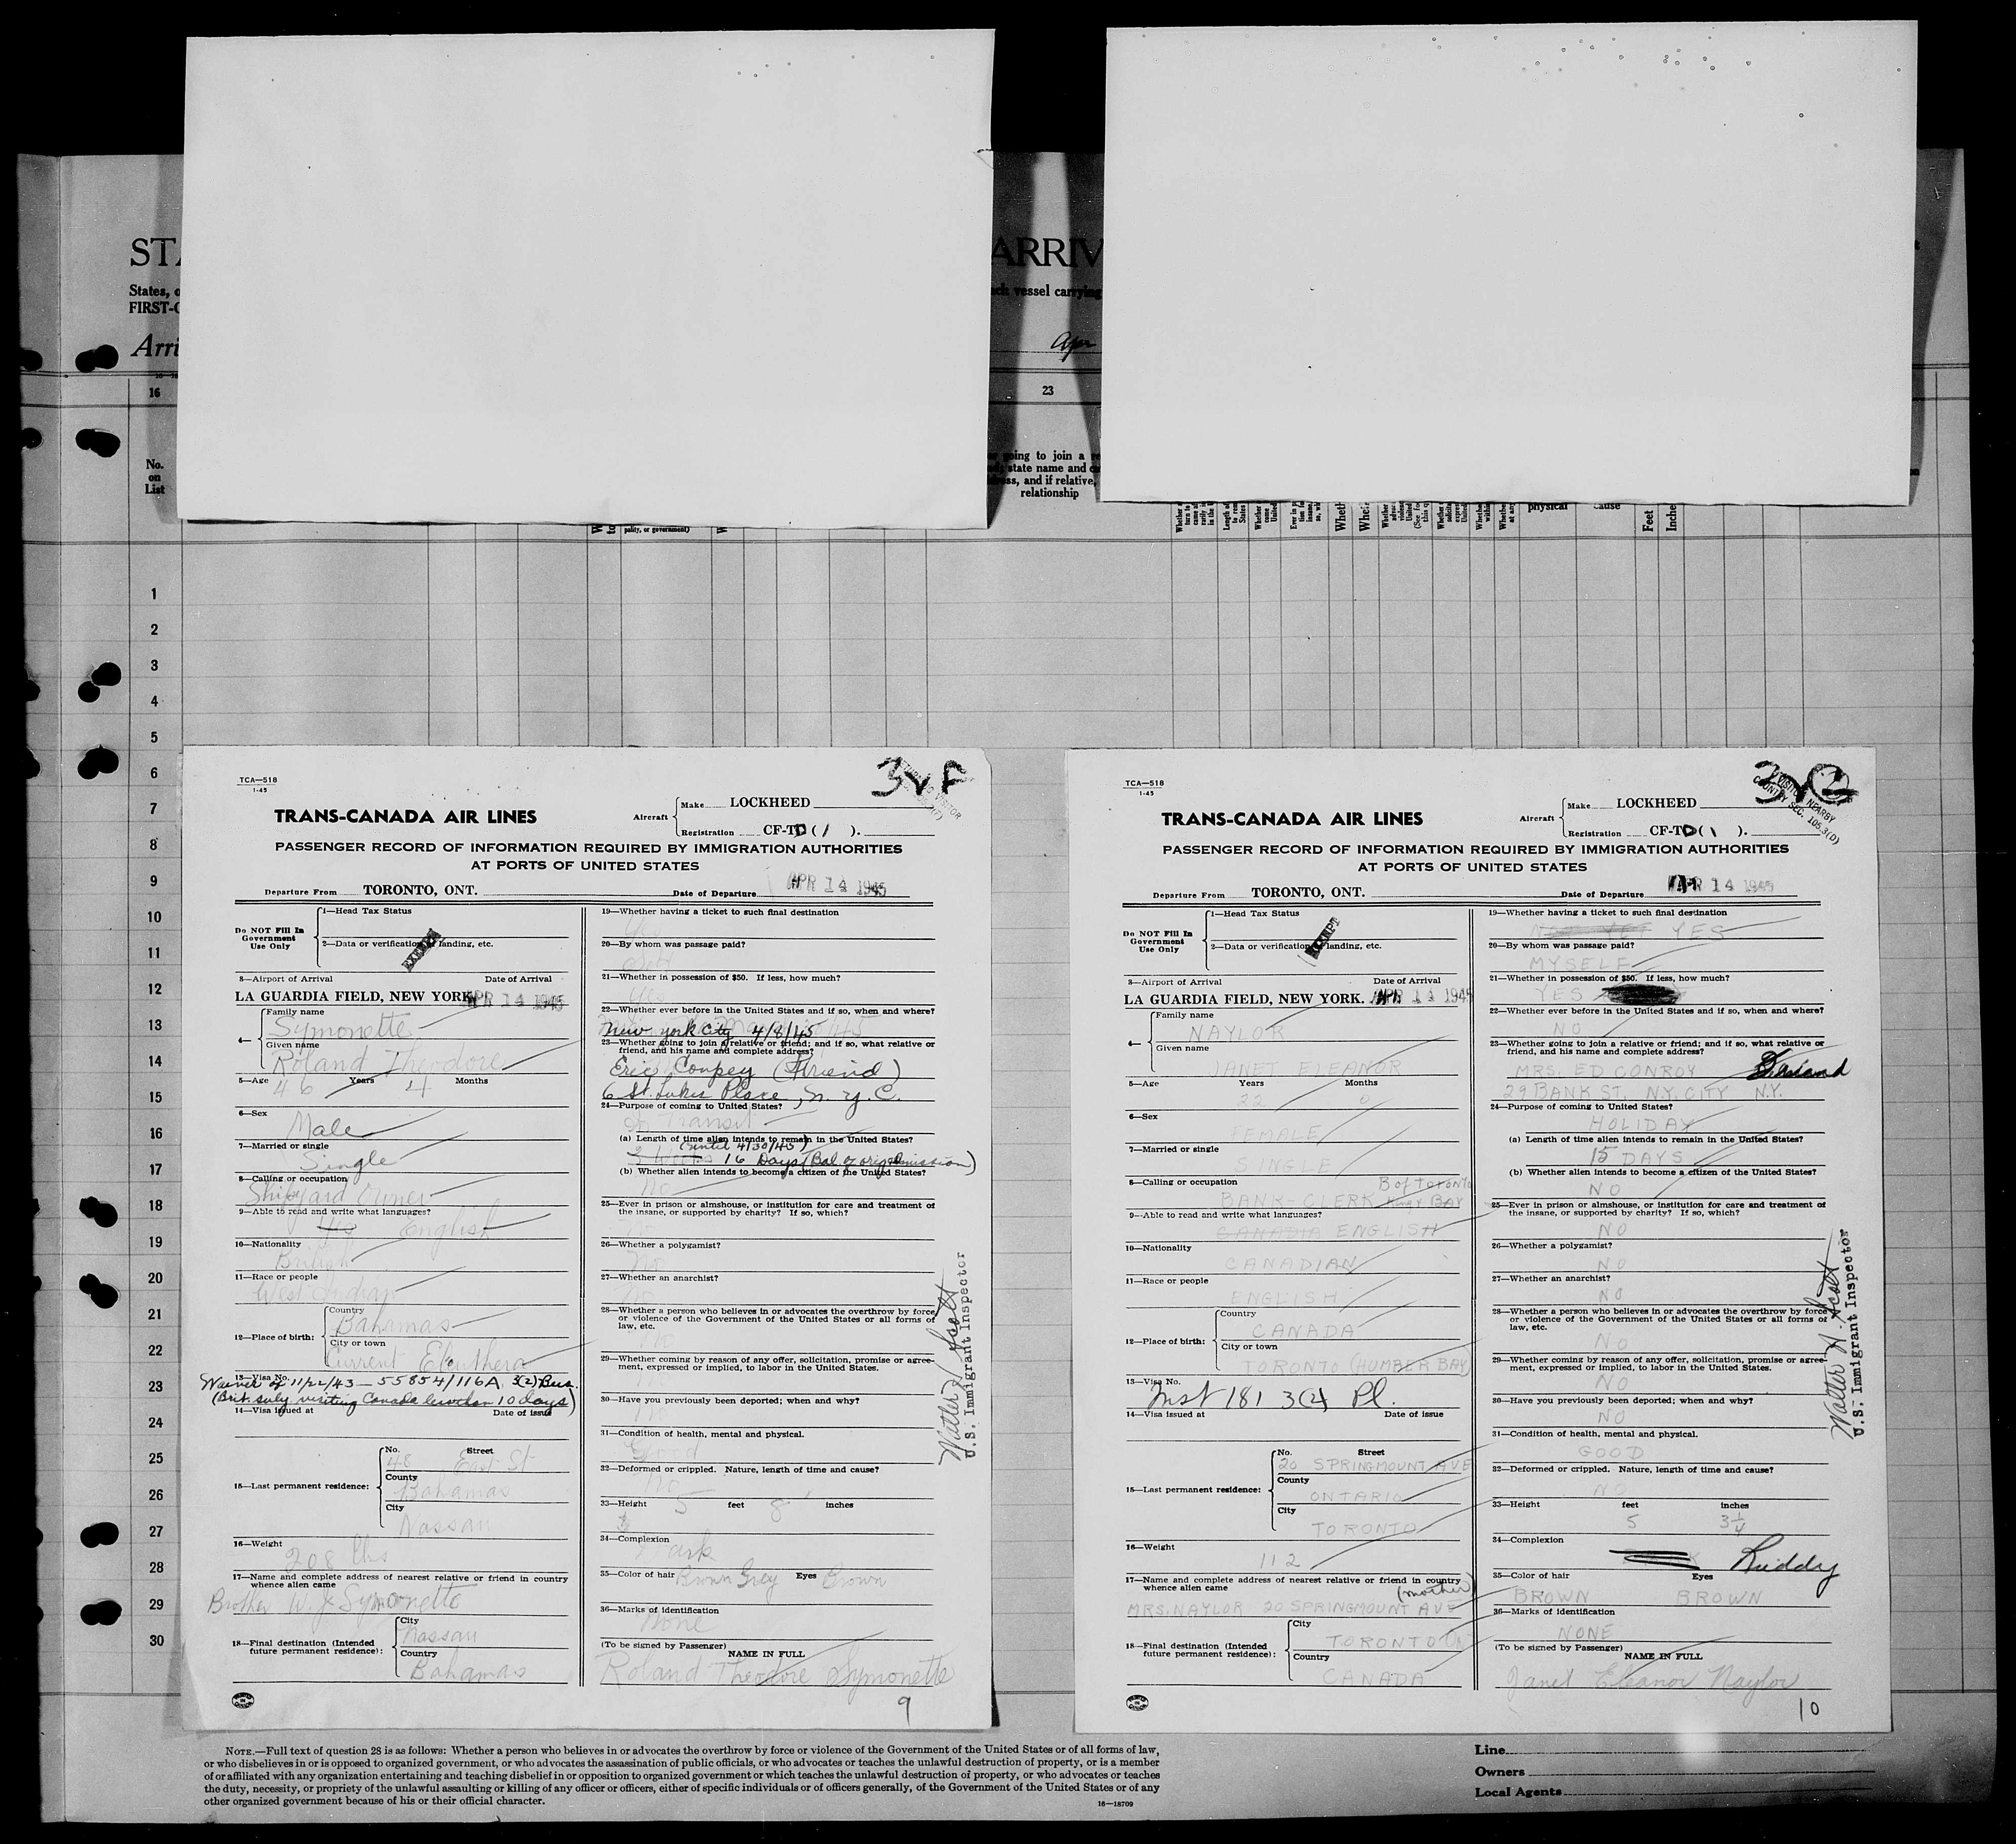 STA
ARRIV
States, o
ach vessel carrying
FIRST-C
Arri
Apr
16
23
No.
on
List
going to join a re
state name and
ress, and if relative,
relationship
pality, or government)
physical
cause
Feet
Inche
1
2
3
4
5
6
7
8
9
10
11
12
13
14
15
16
17
18
19
20
21
22
23
24
25
26
27
28
29
30
TCA—518
1-45
TRANS-CANADA AIR LINES
Aircraft
Make LOCKHEED
Registration CF-TD (1 ).
PASSENGER RECORD OF INFORMATION REQUIRED BY IMMIGRATION AUTHORITIES
AT PORTS OF UNITED STATES
Departure From TORONTO, ONT. Date of Departure APR 14 1945
Do NOT Fill In
Government
Use Only
1—Head Tax Status
2—Data or verification of landing, etc.
EXEMPT
3—Airport of Arrival Date of Arrival
LA GUARDIA FIELD, NEW YORK. APR 14 1945
4—
Family name
Symonette
Given name
Roland Theodore
5—Age 46 Years 4 Months
6—Sex
Male
7—Married or single
Single
8—Calling or occupation
Shipyard Owner
9—Able to read and write what languages?
Yes English
10—Nationality
British
11—Race or people
West Indian
12—Place of birth:
Country
Bahamas
City or town
Current Eleuthera
13—Visa No.
Waiver of 11/22/43—55854/116A 3(2) Bus.
(Brit. subj. visiting Canada less than 10 days)
14—Visa issued at Date of issue
15—Last permanent residence:
No. Street
48 East St
County
Bahamas
City
Nassau
16—Weight
208 lbs
17—Name and complete address of nearest relative or friend in country
whence alien came
Brother W. J Symonette
18—Final destination (Intended
future permanent residence):
City
Nassau
Country
Bahamas
19—Whether having a ticket to such final destination
Yes
20—By whom was passage paid?
Self
21—Whether in possession of $50. If less, how much?
Yes
22—Whether ever before in the United States and if so, when and where?
New York City 4/8/45
23—Whether going to join a relative or friend; and if so, what relative or
friend, and his name and complete address?
Eric Coupey (Friend)
6 St. Lukes Place, N.Y.C.
24—Purpose of coming to United States?
In Transit
(a) Length of time alien intends to remain in the United States?
(until 4/30/45)
3 Weeks 16 Days (Bal of orig admission)
(b) Whether alien intends to become a citizen of the United States?
No
25—Ever in prison or almshouse, or institution for care and treatment of
the insane, or supported by charity? If so, which?
No
26—Whether a polygamist?
No
27—Whether an anarchist?
No
28—Whether a person who believes in or advocates the overthrow by force
or violence of the Government of the United States or all forms of
law, etc.
No
29—Whether coming by reason of any offer, solicitation, promise or agree-
ment, expressed or implied, to labor in the United States.
No
30—Have you previously been deported; when and why?
No
31—Condition of health, mental and physical.
Good
32—Deformed or crippled. Nature, length of time and cause?
No
33—Height 5 feet 8 inches
34—Complexion
Dark
35—Color of hair Brown Grey Eyes Brown
36—Marks of identification
None
(To be signed by Passenger) NAME IN FULL
Roland Theodore Symonette
9
Walter A. Scott
U.S. Immigrant Inspector
TCA—518
1-45
VISITOR NEARBY
COUNTRY SEC. 105.3(D)
TRANS-CANADA AIR LINES
Aircraft
Make LOCKHEED
Registration CF-TD (1 ).
PASSENGER RECORD OF INFORMATION REQUIRED BY IMMIGRATION AUTHORITIES
AT PORTS OF UNITED STATES
Departure From TORONTO, ONT. Date of Departure APR 14 1945
Do NOT Fill In
Government
Use Only
1—Head Tax Status
2—Data or verification of landing, etc.
EXEMPT
3—Airport of Arrival Date of Arrival
LA GUARDIA FIELD, NEW YORK. APR 14 1945
4—
Family name
NAYLOR
Given name
JANET ELEANOR
5—Age Years Months
22 0
6—Sex
FEMALE
7—Married or single
SINGLE
8—Calling or occupation B of TORONTO
BANK-CLERK King & BAY
9—Able to read and write what languages?
CANADIA ENGLISH
10—Nationality
CANADIAN
11—Race or people
ENGLISH
12—Place of birth:
Country
CANADA
City or town
TORONTO (HUMBER BAY)
13—Visa No.
Inst 181 3(2) Pl.
14—Visa issued at Date of issue
15—Last permanent residence:
No. Street
20 SPRINGMOUNT AVE
County
ONTARIO
City
TORONTO
16—Weight
112
17—Name and complete address of nearest relative or friend in country
whence alien came (mother)
MRS. NAYLOR 20 SPRINGMOUNT AVE
18—Final destination (Intended
future permanent residence):
City
TORONTO ONT
Country
CANADA
19—Whether having a ticket to such final destination
YES
20—By whom was passage paid?
MYSELF
21—Whether in possession of $50. If less, how much?
YES
22—Whether ever before in the United States and if so, when and where?
NO
23—Whether going to join a relative or friend; and if so, what relative or
friend, and his name and complete address?
MRS. ED CONROY
29 BANK ST. N.Y. CITY N.Y.
24—Purpose of coming to United States?
HOLIDAY
(a) Length of time alien intends to remain in the United States?
15 DAYS
(b) Whether alien intends to become a citizen of the United States?
NO
25—Ever in prison or almshouse, or institution for care and treatment of
the insane, or supported by charity? If so, which?
NO
26—Whether a polygamist?
NO
27—Whether an anarchist?
NO
28—Whether a person who believes in or advocates the overthrow by force
or violence of the Government of the United States or all forms of
law, etc.
NO
29—Whether coming by reason of any offer, solicitation, promise or agree-
ment, expressed or implied, to labor in the United States.
NO
30—Have you previously been deported; when and why?
NO
31—Condition of health, mental and physical.
GOOD
32—Deformed or crippled. Nature, length of time and cause?
NO
33—Height feet inches
5 3¼
34—Complexion
Ruddy
35—Color of hair Eyes
BROWN BROWN
36—Marks of identification
NONE
(To be signed by Passenger) NAME IN FULL
Janet Eleanor Naylor
10
Walter A. Scott
U.S. Immigrant Inspector
NOTE.—Full text of question 28 is as follows: Whether a person who believes in or advocates the overthrow by force or violence of the Government of the United States or of all forms of law,
or who disbelieves in or is opposed to organized government, or who advocates the assassination of public officials, or who advocates or teaches the unlawful destruction of property, or is a member
of or affiliated with any organization entertaining and teaching disbelief in or opposition to organized government or which teaches the unlawful destruction of property, or who advocates or teaches
the duty, necessity, or propriety of the unlawful assaulting or killing of any officer or officers, either of specific individuals or of officers generally, of the Government of the United States or of any
other organized government because of his or their official character.
16—18709
Line
Owners
Local Agents